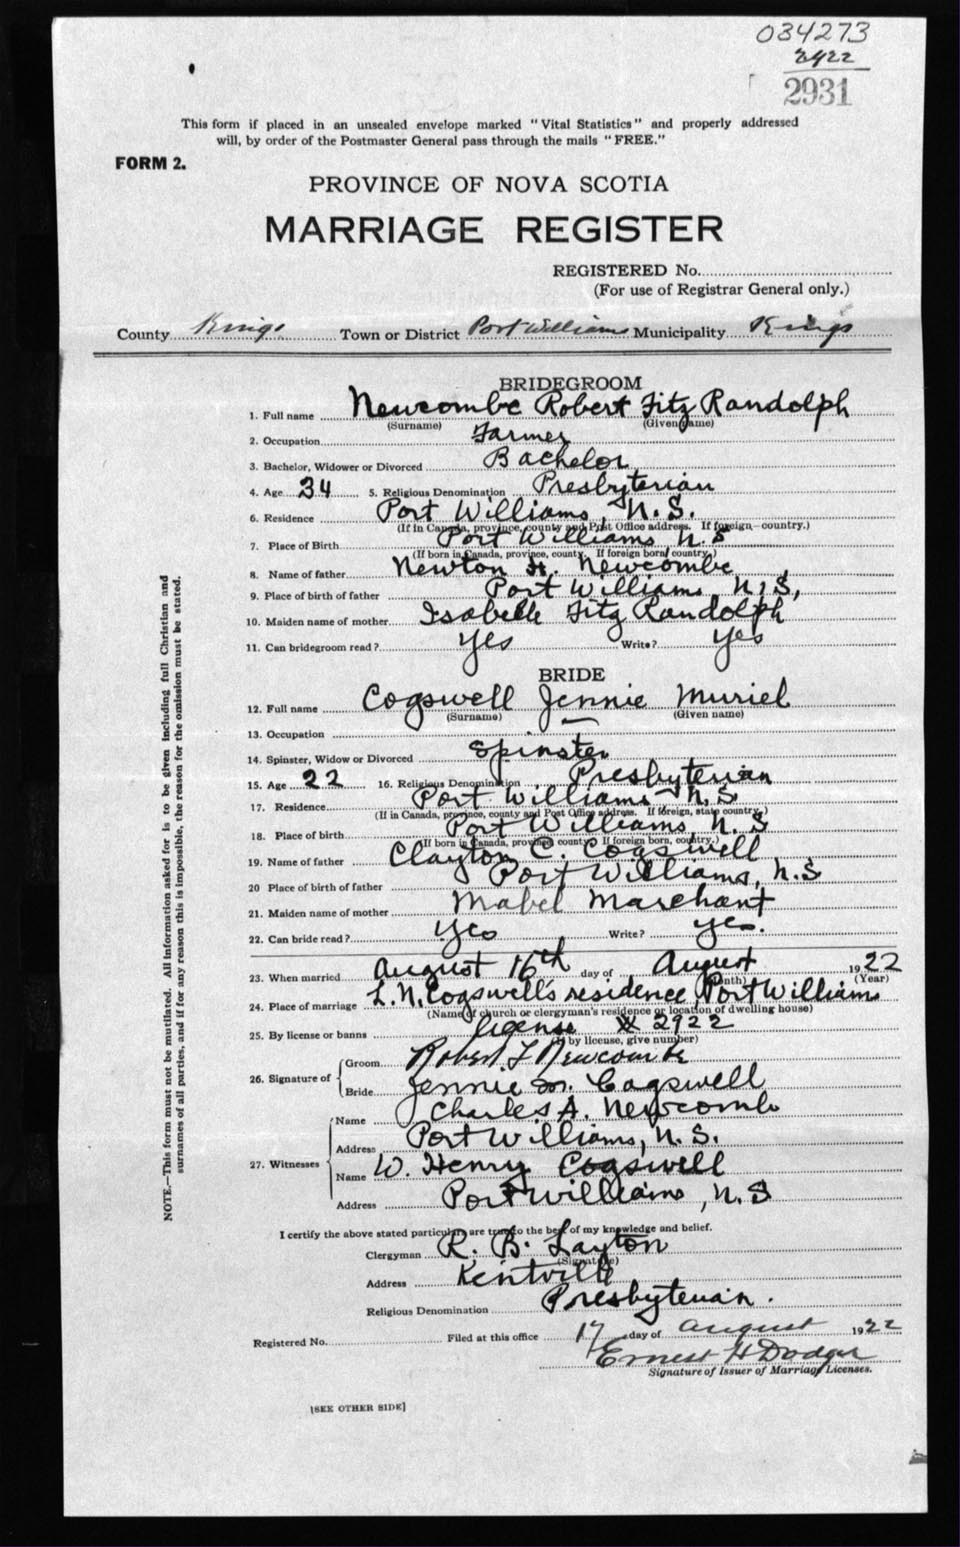 034273
2931
This form if placed in an unsealed envelope marked "Vital Statistics" and properly addressed
will, by order of the Postmaster General pass through the mails "FREE."
FORM 2.
PROVINCE OF NOVA SCOTIA
MARRIAGE REGISTER
REGISTERED No.
(For use of Registrar General only.)
County Kings Town or District Port Williams Municipality Kings
BRIDEGROOM
1. Full name Newcombe Robert Fitz Randolph
(Surname) (Given name)
2. Occupation Farmer
3. Bachelor, Widower or Divorced Bachelor
4. Age 34 5. Religious Denomination Presbyterian
6. Residence Port Williams, N.S.
(If in Canada, province, county and Post Office address. If foreign—country.)
7. Place of Birth Port Williams, N.S
(If born in Canada, province, county. If foreign born, country.)
8. Name of father Newton H. Newcombe
9. Place of birth of father Port Williams, N.S,
10. Maiden name of mother Isabelle Fitz Randolph
11. Can bridegroom read? yes Write? yes
BRIDE
12. Full name Cogswell Jennie Muriel
(Surname) (Given name)
13. Occupation —
14. Spinster, Widow or Divorced Spinster
15. Age 22 16. Religious Denomination Presbyterian
17. Residence Port Williams N.S
(If in Canada, province, county and Post Office address. If foreign, state country.)
18. Place of birth Port Williams, N.S
(If born in Canada, province county. If foreign born, country.)
19. Name of father Clayton C. Cogswell
20 Place of birth of father Port Williams, N.S
21. Maiden name of mother Mabel Marchant
22. Can bride read? yes Write? yes.
23. When married August 16th day of August 1922
(Month) (Year)
24. Place of marriage L.N. Cogswell's residence, Port Williams
(Name of church or clergyman's residence or location of dwelling house)
25. By license or banns license # 2922
(If by license, give number)
26. Signature of
Groom Robert F Newcombe
Bride Jennie M. Cogswell
27. Witnesses
Name Charles A. Newcomb
Address Port Williams, N.S.
Name W. Henry Cogswell
Address Port Williams, N.S
I certify the above stated particulars are true to the best of my knowledge and belief.
Clergyman R. B. Layton
(Signature)
Address Kentville
Religious Denomination Presbyterian.
Registered No. Filed at this office 17 day of August 1922
Ernest H Dodge
Signature of Issuer of Marriage Licenses.
[SEE OTHER SIDE]
NOTE.—This form must not be mutilated. All information asked for is to be given including full Christian and
surnames of all parties, and if for any reason this is impossible, the reason for the omission must be stated.